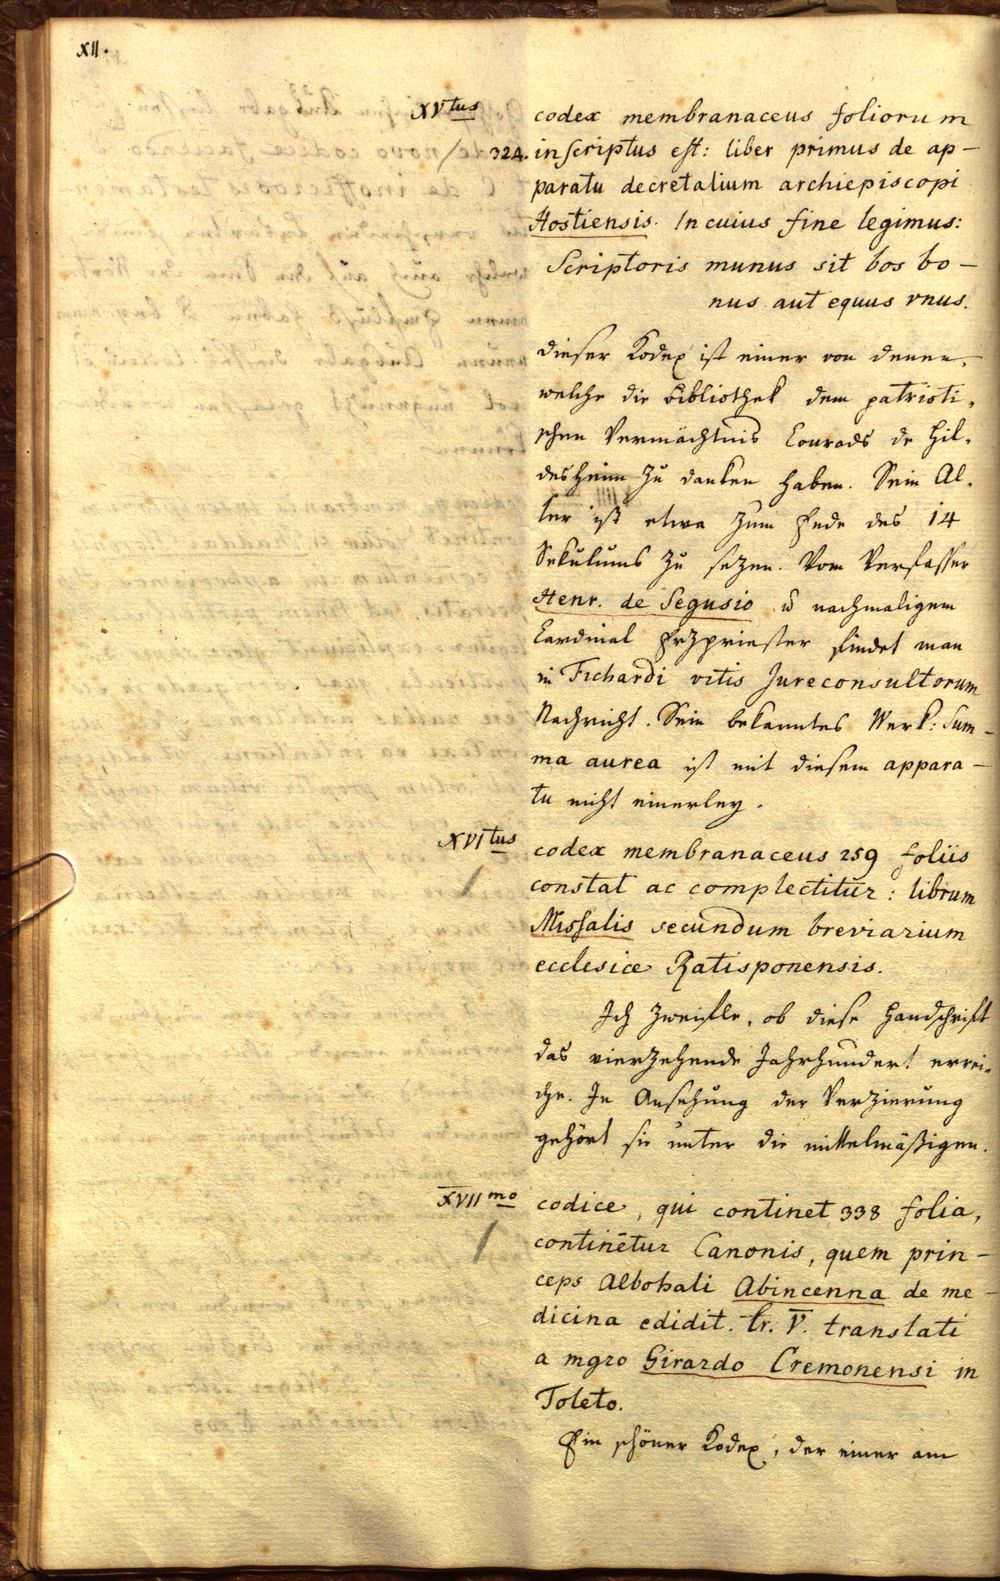 XII.
XVtus codex membranaceus foliorum
324. inscriptus est: liber primus de ap-
paratu decretalium archiepiscopi
Hostiensis. In cuius fine legimus:
Scriptoris munus sit bos bo-
nus aut equus vnus.
dieser Kodex ist einer von denen,
welche die bibliothek dem patrioti-
schen Vermächtnis Conrads de Hil-
desheim zu danken haben. Sein Al-
ter ist etwa zum Ende des 14
Sekulums zu sezen. Vom Verfasser
Henr. de Segusio u nachmaligem
Cardinal Erzpriester findet man
in Fichardi vitis Jureconsultorum
Nachricht. Sein bekanntes Werk: Sum-
ma aurea ist mit diesem appara-
tu nicht einerley.
XVItus codex membranaceus 259 foliis
constat ac complectitur: librum
Missalis secundum breviarium
ecclesice Ratisponensis.
Ich zweifle, ob diese Handschrift
das vierzehende Jahrhundert errei-
che. In Ansehung der Verzierung
gehört sie unter die mittelmäßigen.
XVIImo codice, qui continet 338 folia,
continētur Canonis, quem prin-
ceps Albohali Abincenna de me-
dicina edidit. lr. V. translati
a mgro Girardo Cremonensi in
Toleto.
Ein schöner Kodex, der einer am